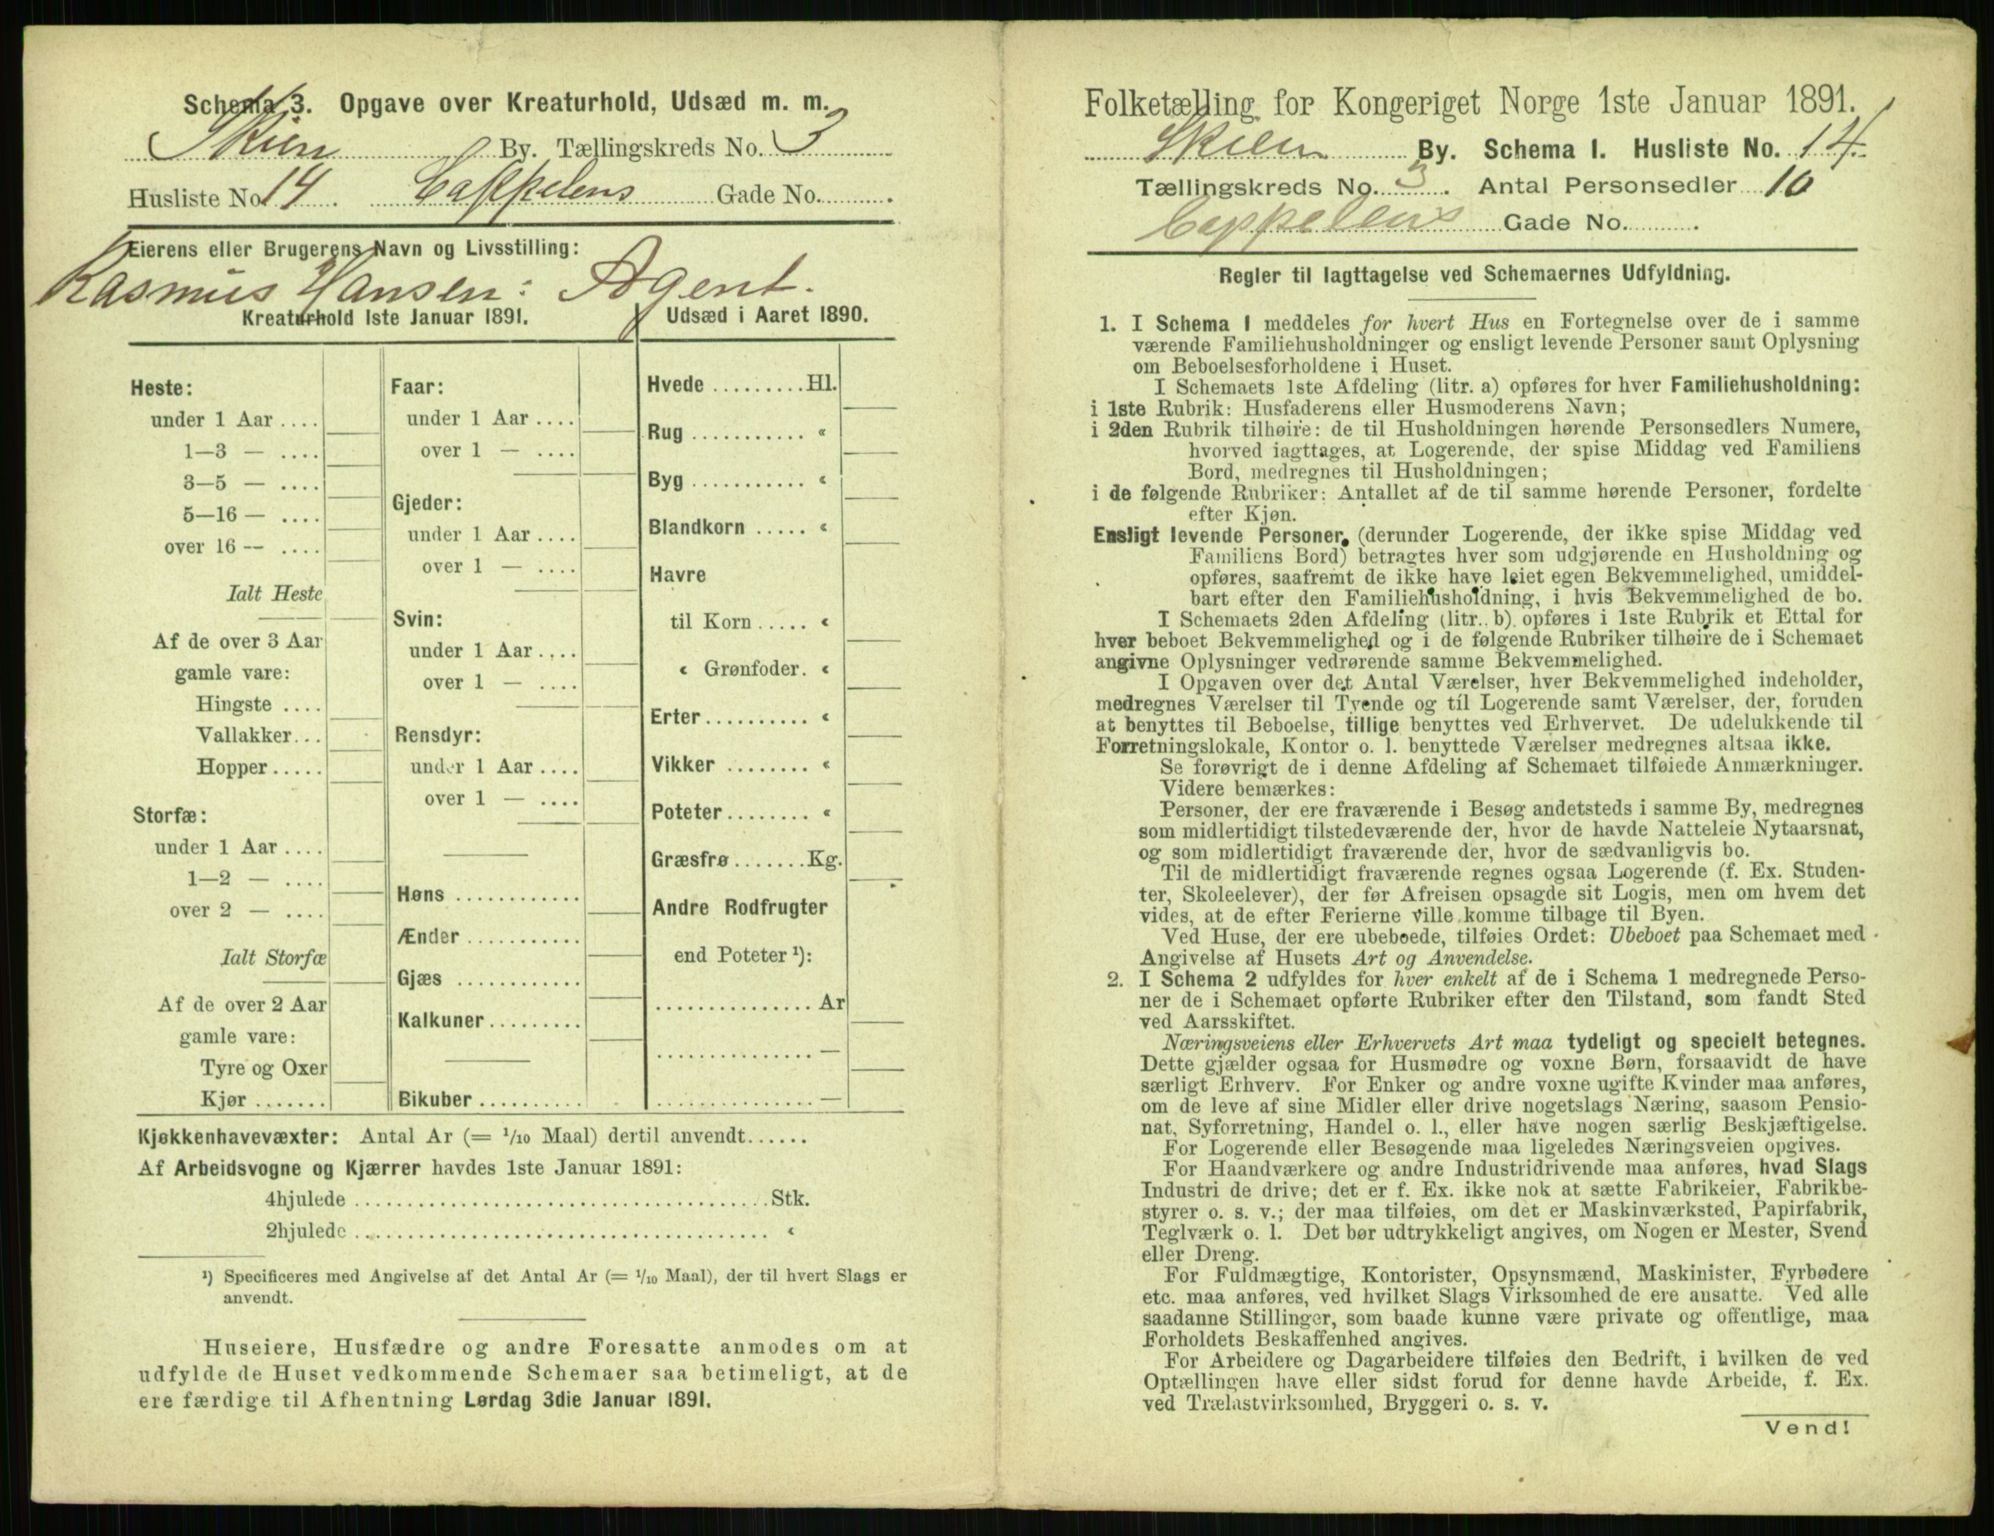 Schema 3. Opgave over Kreaturhold, Udsæd m. m.
Skien By. Tællingskreds No. 3
Husliste No 14. Cappelens Gade No. .
Eierens eller Brugerens Navn og Livsstilling:
Rasmus Hansen: Agent.
Kreaturhold 1ste Januar 1891.
Heste:
under 1 Aar ....
1—3 — ....
3—5 — ....
5—16 — ....
over 16 -- ....
Ialt Heste
Af de over 3 Aar
gamle vare:
Hingste ....
Vallakker...
Hopper.....
Storfæ:
under 1 Aar ....
1—2 — ....
over 2 — ....
Ialt Storfæ
Af de over 2 Aar
gamle vare:
Tyre og Oxer
Kjør .......
Faar:
under 1 Aar ....
over 1 — ....
Gjeder:
under 1 Aar ....
over 1 — ....
Svin:
under 1 Aar ....
over 1 — ....
Rensdyr:
under 1 Aar ....
over 1 — ....
Høns ............
Ænder ...........
Gjæs ............
Kalkuner.........
Bikuber ..........
Udsæd i Aaret 1890.
Hvede .........Hl.
Rug ........... «
Byg ........... «
Blandkorn ..... «
Havre
til Korn ..... «
« Grønfoder. «
Erter.......... «
Vikker ........ «
Poteter........ «
Græsfrø .......Kg.
Andre Rodfrugter
end Poteter ¹):
............... Ar
............... —
............... —
Kjøkkenhavevæxter: Antal Ar (= 1/10 Maal) dertil anvendt......
Af Arbeidsvogne og Kjærrer havdes 1ste Januar 1891:
4hjulede ....................................Stk.
2hjulede .................................... «
¹) Specificeres med Angivelse af det Antal Ar (= 1/10 Maal), der til hvert Slags er
anvendt.
Huseiere, Husfædre og andre Foresatte anmodes om at
udfylde de Huset vedkommende Schemaer saa betimeligt, at de
ere færdige til Afhentning Lørdag 3die Januar 1891.
Folketælling for Kongeriget Norge 1ste Januar 1891.
Skien By. Schema I. Husliste No. 14.
Tællingskreds No. 3. Antal Personsedler 10
Cappelens Gade No. .
Regler til Iagttagelse ved Schemaernes Udfyldning.
1. I Schema 1 meddeles for hvert Hus en Fortegnelse over de i samme
værende Familiehusholdninger og ensligt levende Personer samt Oplysning
om Beboelsesforholdene i Huset.
I Schemaets 1ste Afdeling (litr. a) opføres for hver Familiehusholdning:
i 1ste Rubrik: Husfaderens eller Husmoderens Navn;
i 2den Rubrik tilhøire: de til Husholdningen hørende Personsedlers Numere,
hvorved iagttages, at Logerende, der spise Middag ved Familiens
Bord, medregnes til Husholdningen;
i de følgende Rubriker: Antallet af de til samme hørende Personer, fordelte
efter Kjøn.
Ensligt levende Personer, (derunder Logerende, der ikke spise Middag ved
Familiens Bord) betragtes hver som udgjørende en Husholdning og
opføres, saafremt de ikke have leiet egen Bekvemmelighed, umiddel-
bart efter den Familiehusholdning, i hvis Bekvemmelighed de bo.
I Schemaets 2den Afdeling (litr. b) opføres i 1ste Rubrik et Ettal for
hver beboet Bekvemmelighed og i de følgende Rubriker tilhøire de i Schemaet
angivne Oplysninger vedrørende samme Bekvemmelighed.
I Opgaven over det Antal Værelser, hver Bekvemmelighed indeholder,
medregnes Værelser til Tyende og til Logerende samt Værelser, der, foruden
at benyttes til Beboelse, tillige benyttes ved Erhvervet. De udelukkende til
Forretningslokale, Kontor o. l. benyttede Værelser medregnes altsaa ikke.
Se forøvrigt de i denne Afdeling af Schemaet tilføiede Anmærkninger.
Videre bemærkes:
Personer, der ere fraværende i Besøg andetsteds i samme By, medregnes
som midlertidigt tilstedeværende der, hvor de havde Natteleie Nytaarsnat,
og som midlertidigt fraværende der, hvor de sædvanligvis bo.
Til de midlertidigt fraværende regnes ogsaa Logerende (f. Ex. Studen-
ter, Skoleelever), der før Afreisen opsagde sit Logis, men om hvem det
vides, at de efter Ferierne ville komme tilbage til Byen.
Ved Huse, der ere ubeboede, tilføies Ordet: Ubeboet paa Schemaet med
Angivelse af Husets Art og Anvendelse.
2. I Schema 2 udfyldes for hver enkelt af de i Schema 1 medregnede Perso-
ner de i Schemaet opførte Rubriker efter den Tilstand, som fandt Sted
ved Aarsskiftet.
Næringsveiens eller Erhvervets Art maa tydeligt og specielt betegnes.
Dette gjælder ogsaa for Husmødre og voxne Børn, forsaavidt de have
særligt Erhverv. For Enker og andre voxne ugifte Kvinder maa anføres,
om de leve af sine Midler eller drive nogetslags Næring, saasom Pensio-
nat, Syforretning, Handel o. l., eller have nogen særlig Beskjæftigelse.
For Logerende eller Besøgende maa ligeledes Næringsveien opgives.
For Haandværkere og andre Industridrivende maa anføres, hvad Slags
Industri de drive; det er f. Ex. ikke nok at sætte Fabrikeier, Fabrikbe-
styrer o. s. v.; der maa tilføies, om det er Maskinværksted, Papirfabrik,
Teglværk o. l. Det bør udtrykkeligt angives, om Nogen er Mester, Svend
eller Dreng.
For Fuldmægtige, Kontorister, Opsynsmænd, Maskinister, Fyrbødere
etc. maa anføres, ved hvilket Slags Virksomhed de ere ansatte. Ved alle
saadanne Stillinger, som baade kunne være private og offentlige, maa
Forholdets Beskaffenhed angives.
For Arbeidere og Dagarbeidere tilføies den Bedrift, i hvilken de ved
Optællingen have eller sidst forud for denne havde Arbeide, f. Ex.
ved Trælastvirksomhed, Bryggeri o. s. v.
Vend!